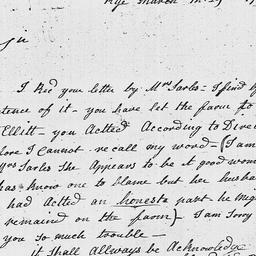 Rye March
Sir
I Recd your letter by Mrs Sarles = I find by
tence of it - you have let the farm to
Ellitt - you Actted According to Direc
fore I Cannot re call my word - (I am
Mrs Sarles She Appears to be a good wom
has know one to blame but her husba
had Actted an honest part he mig
remain on the farm) - I am Sorry
you so much trouble -
it Shall allways be Acknowledge